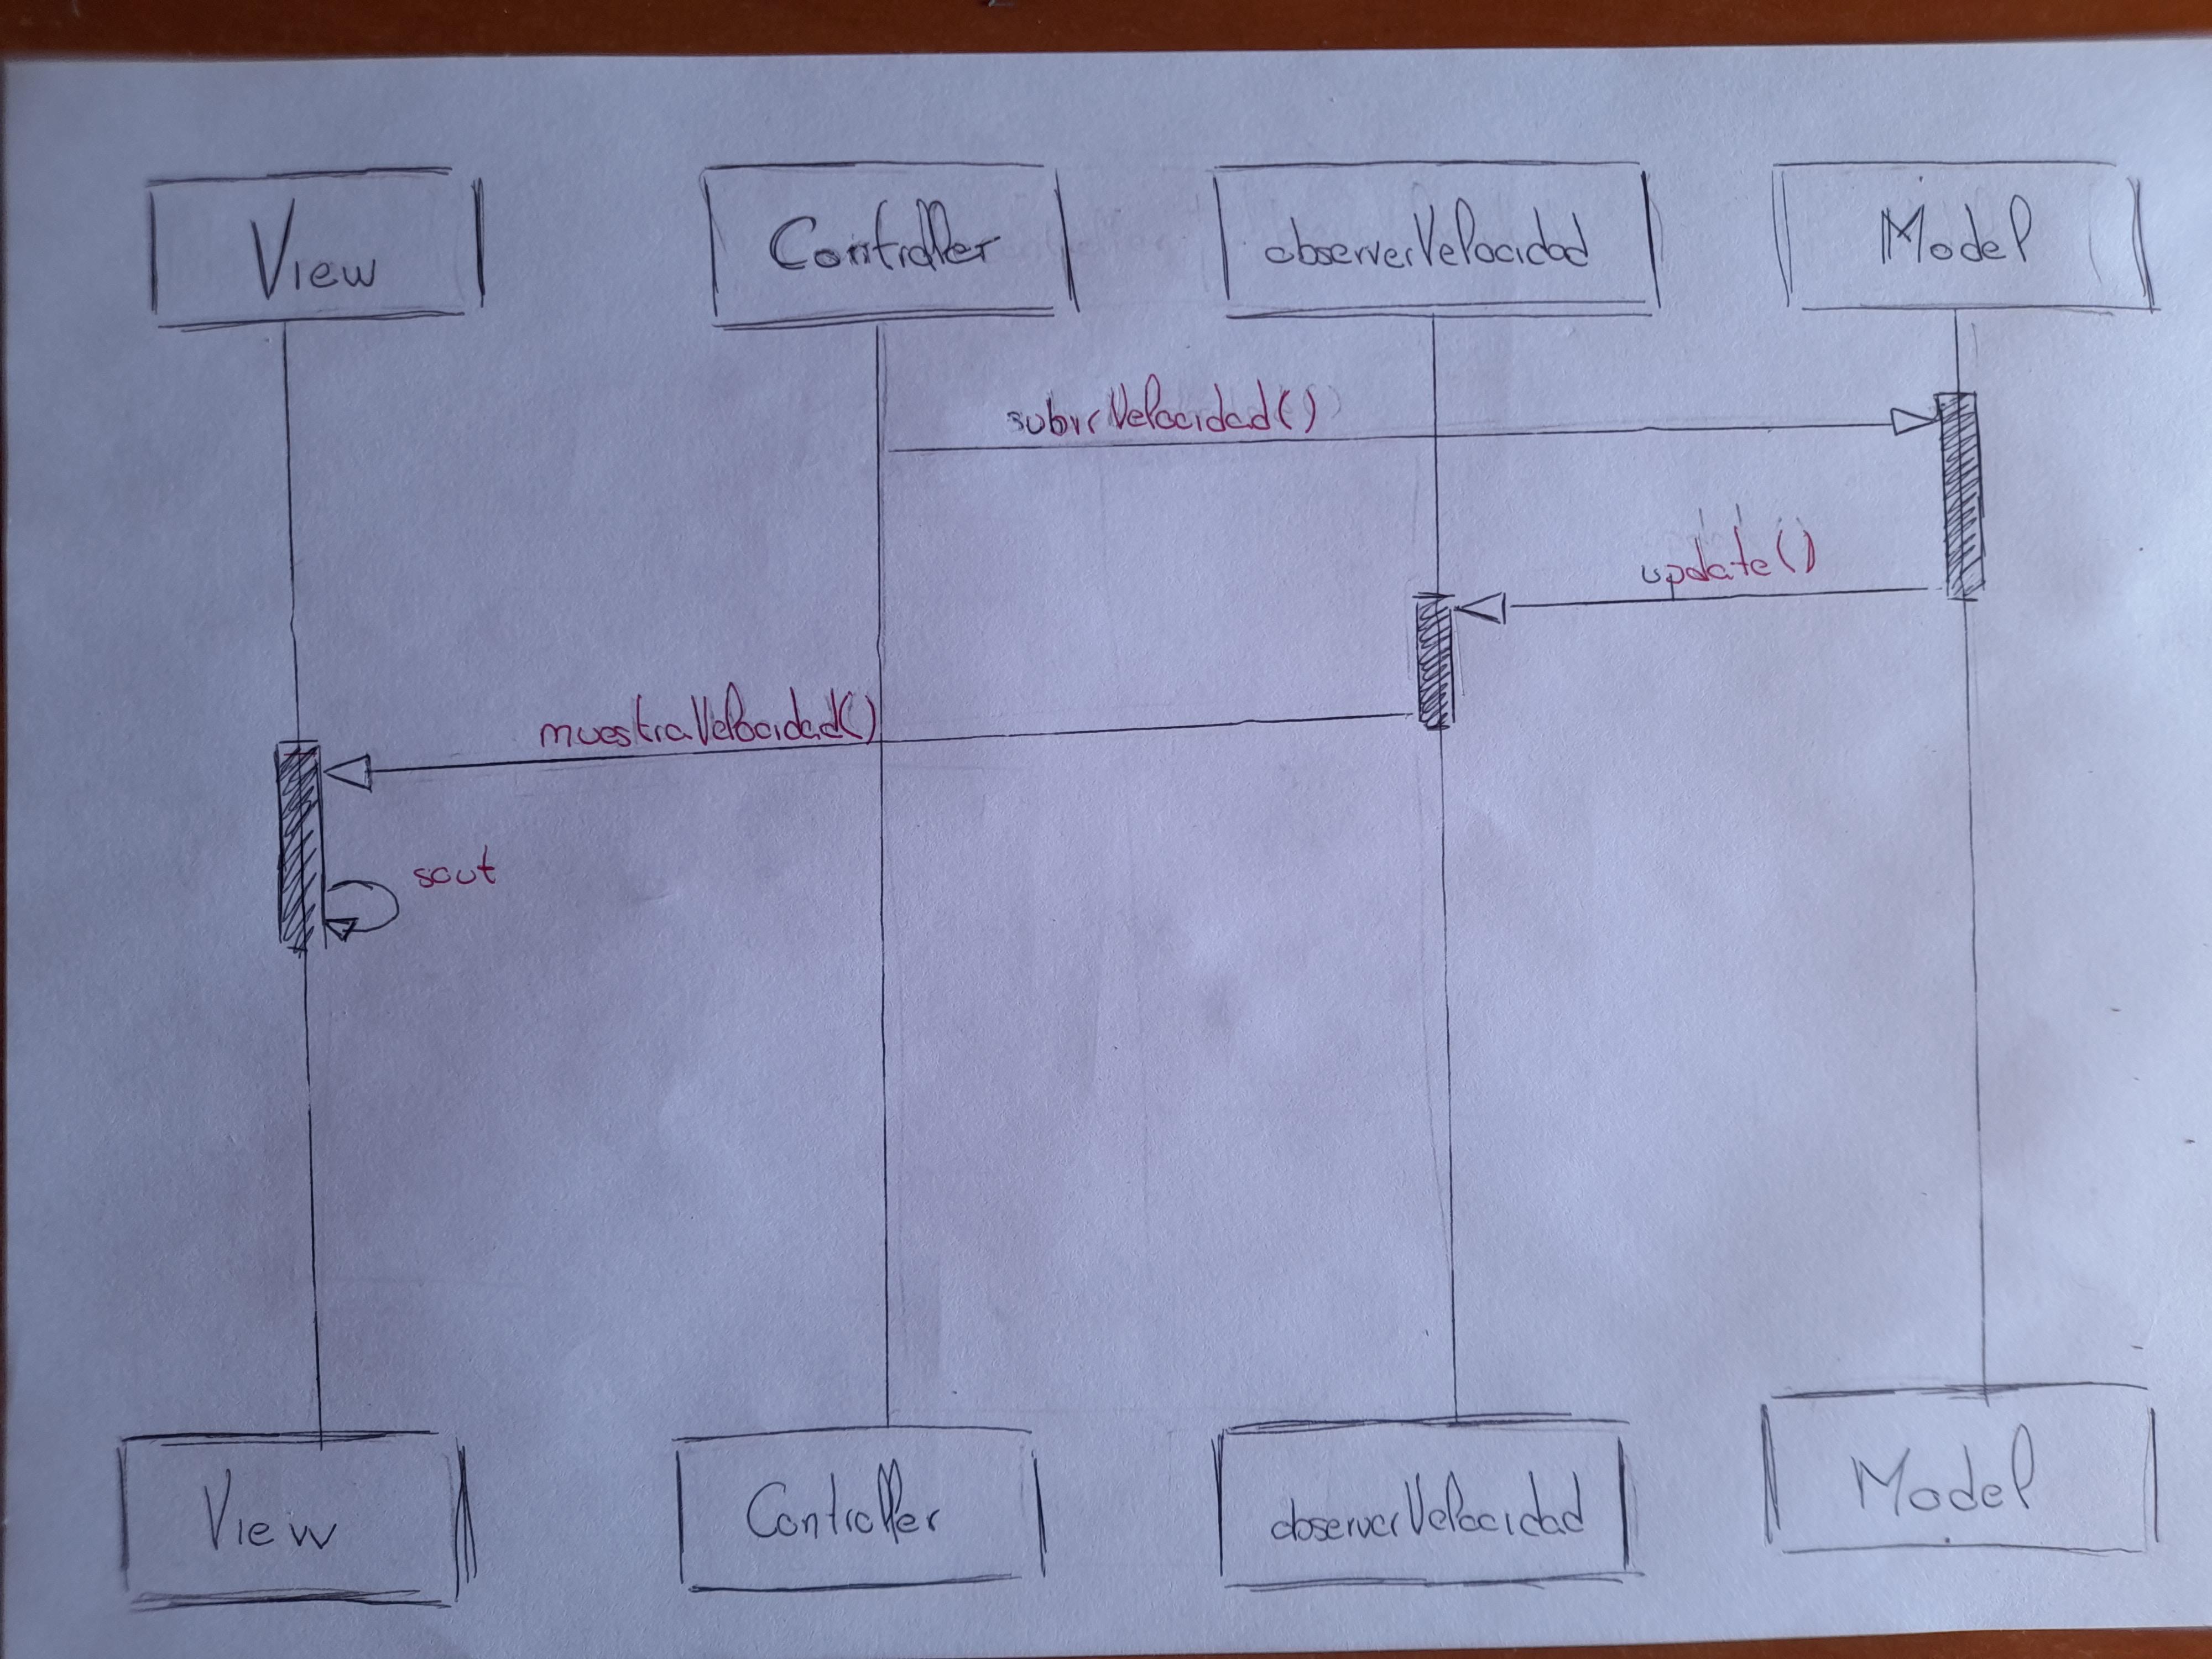 View
Controller
observerVelocidad
Model
subirVelocidad()
update()
muestraVelocidad()
sout
View
Controller
observerVelocidad
Model